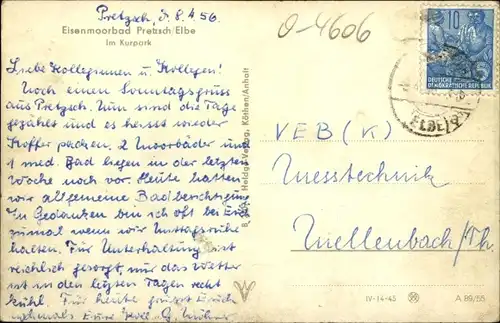 Pretzsch, d. 8.4.56.
Eisenmoorbad Pretzsch/Elbe
Im Kurpark
Liebe Kolleginnen u. Kollegen!
Noch einen Sonntagsgruss
aus Pretzsch. Nun sind die Tage
gezählt und es heisst wieder
Koffer packen. 2 Moorbäder und
1 med. Bad liegen in der letzten
Woche noch vor. Heute hatten
wir allgemeine Badbesichtigung
In Gedanken bin ich oft bei Euch
zumal wenn wir Mittagsruhe
halten. Für Unterhaltung ist
reichlich gesorgt, nur das Wetter
ist in den letzten Tagen recht
kühl. Für heute grüsst Euch
nochmals Eure Koll. G.
Heldge-Verlag, Köthen/Anhalt
0-4606
10
DEUTSCHE
DEMOKRATISCHE REPUBLIK
ELBE
VEB (K)
Messtechnik
Mellenbach/Th.
IV-14-45
A 89/55